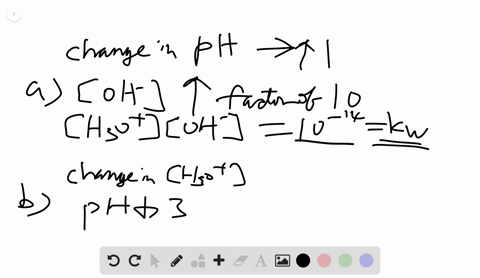 change in pH → ↑ 1
a) [OH⁻] ↑ factor of 10
[H₃O⁺][OH⁻] = 10⁻¹⁴ = kw
change in [H₃O⁺]
b) pH ↓ 3